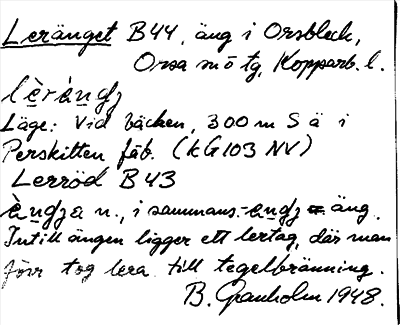 Leränget B44, äng i Orsbleck,
Orsa sn ö tg, Kopparb. l.
lèrángʒ
Läge: Vid bäcken, 300 m S ä i
Perskitten fäb. (KG103 NV)
Lerröd B43
àngʒa n., i sammans.-angʒ = äng.
Intill ängen ligger ett lertag, där man
förr tog lera till tegelbränning.
B. Granholm 1948.